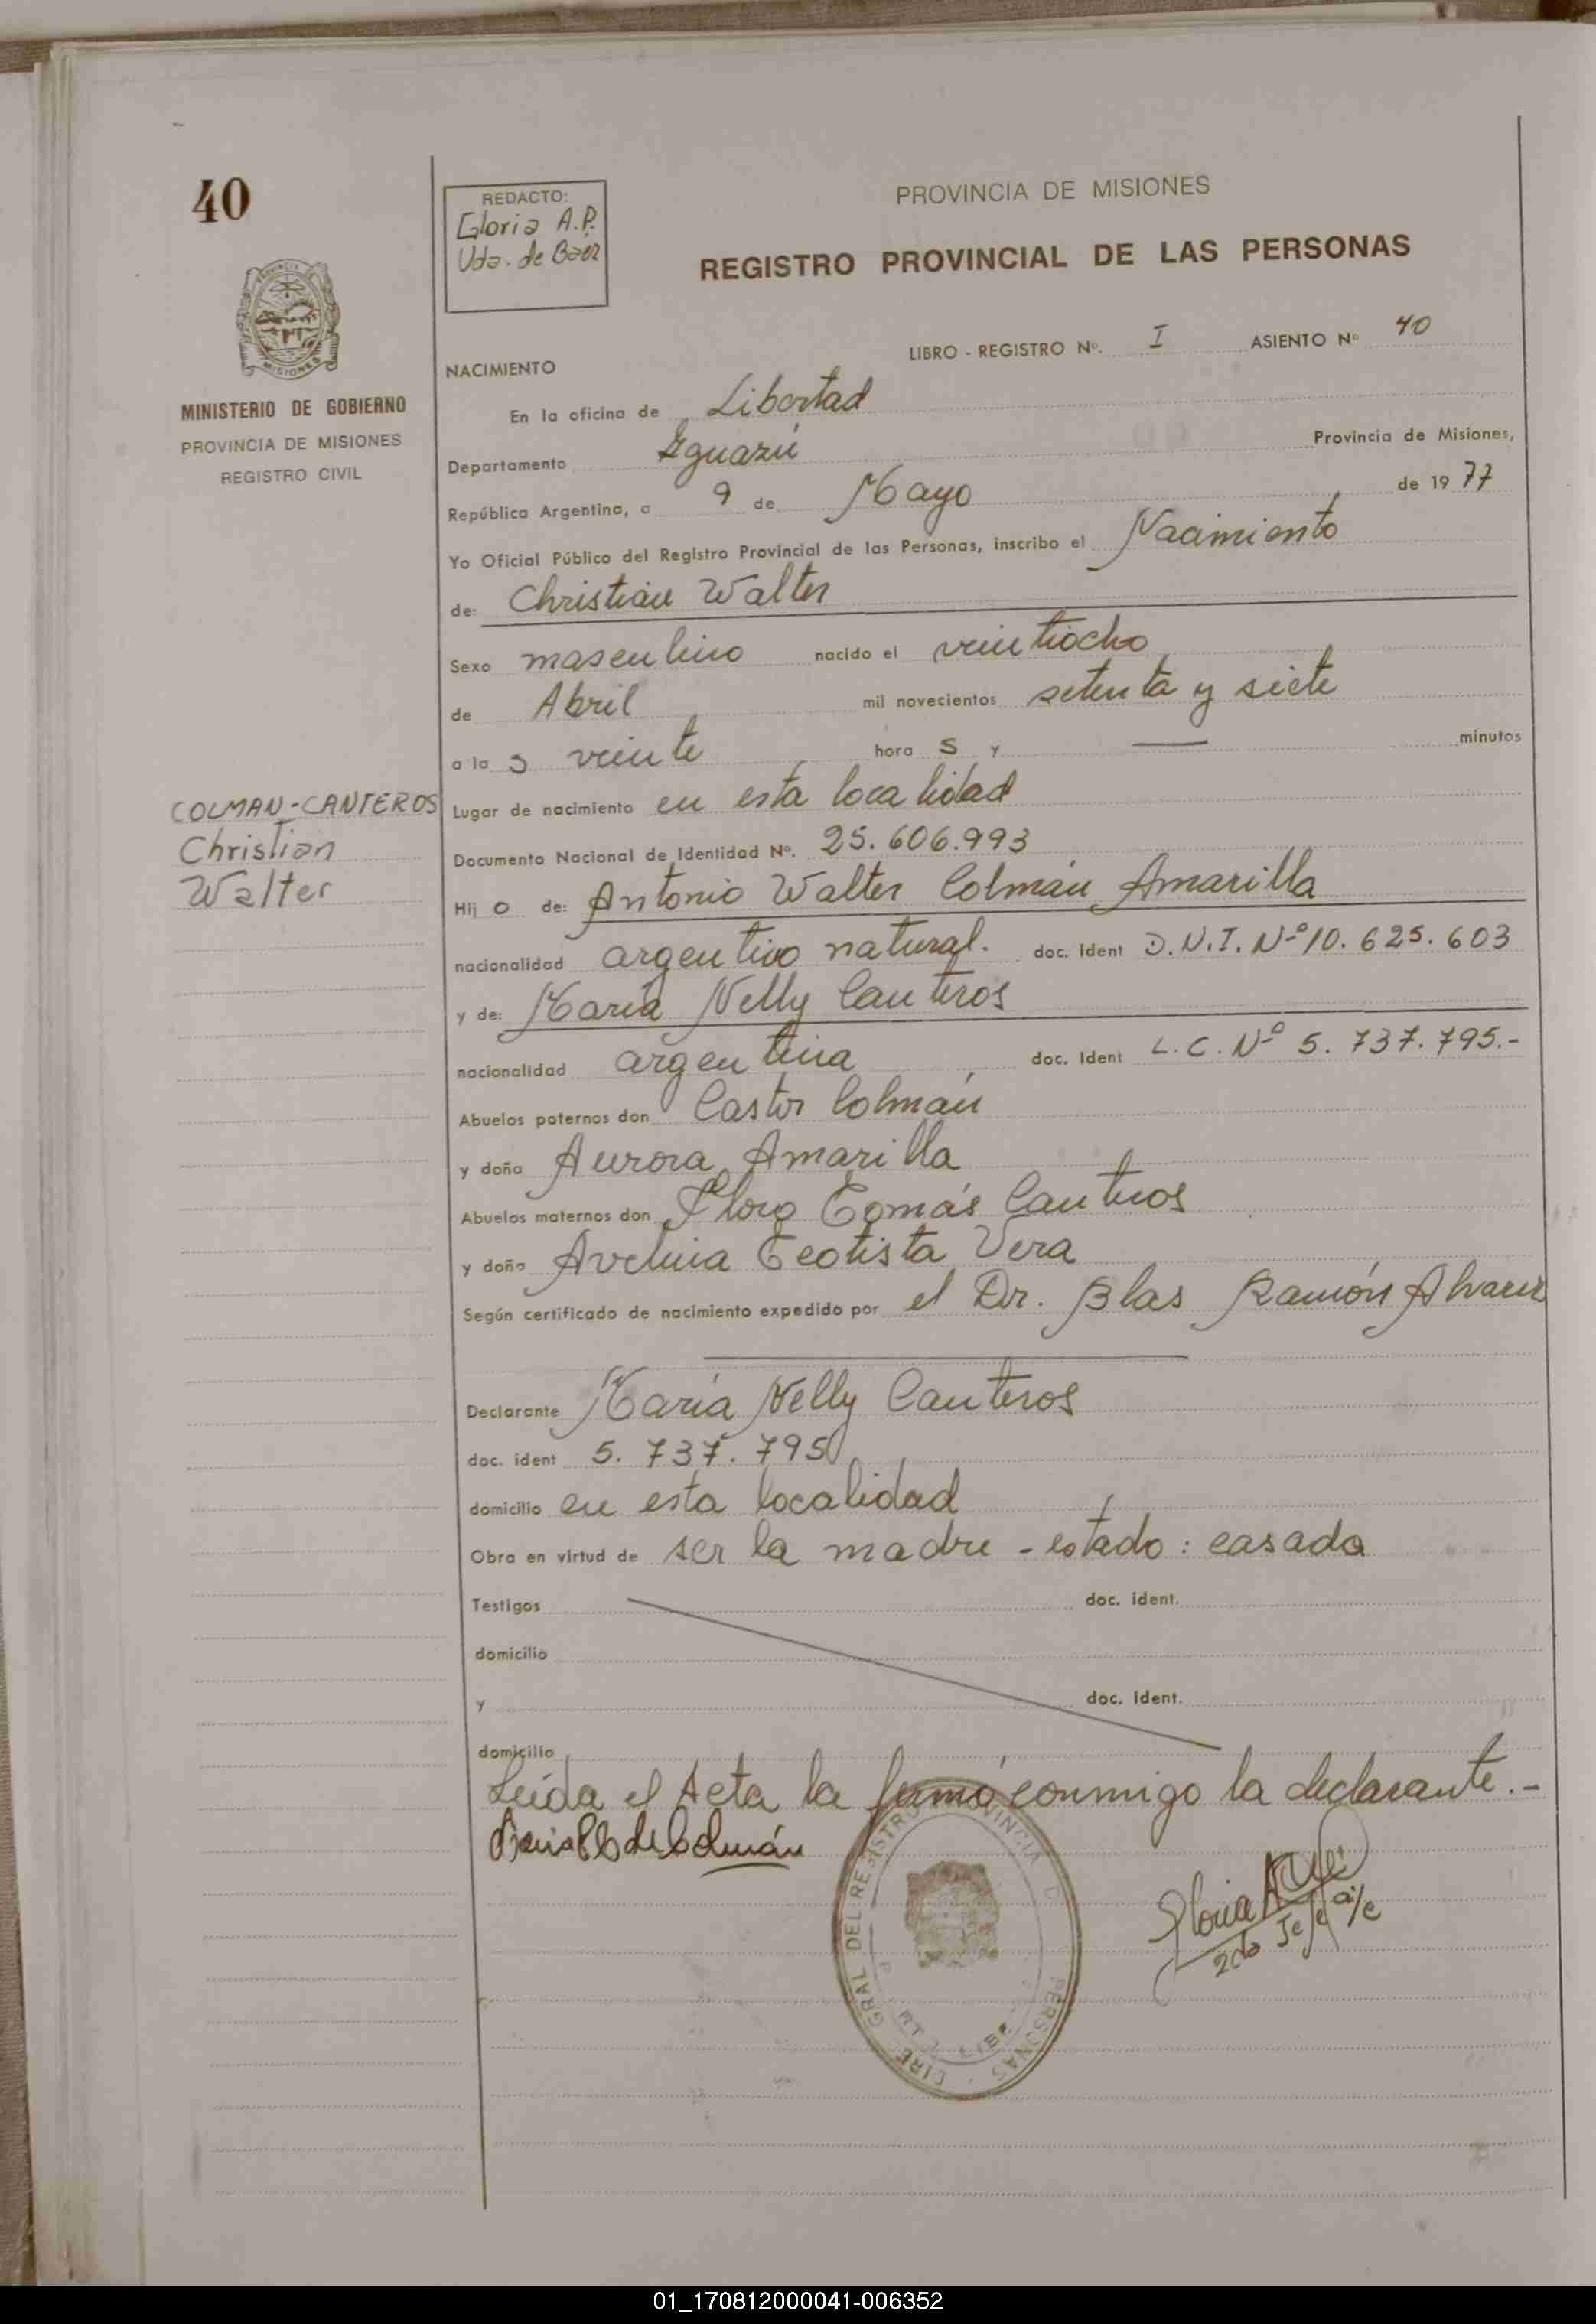 40
REDACTO:
Gloria A.P.
Vda. de Baez
PROVINCIA DE MISIONES
REGISTRO PROVINCIAL DE LAS PERSONAS
MINISTERIO DE GOBIERNO
PROVINCIA DE MISIONES
REGISTRO CIVIL
LIBRO - REGISTRO Nº. I ASIENTO Nº 40
NACIMIENTO
En la oficina de Libertad
Departamento Iguazú Provincia de Misiones,
República Argentina, a 9 de Mayo de 1977
Yo Oficial Público del Registro Provincial de las Personas, inscribo el Nacimiento
de: Christian Walter
Sexo masculino nacido el veintiocho
de Abril mil novecientos setenta y siete
a la s veinte hora s y — minutos
COLMAN-CANTEROS
Christian
Walter
Lugar de nacimiento en esta localidad
Documento Nacional de Identidad Nº. 25.606.993
Hij o de: Antonio Walter Colmán Amarilla
nacionalidad argentino natural. doc. Ident D.N.I. Nº 10.625.603
y de: María Nelly Canteros
nacionalidad argentina doc. Ident L.C. Nº 5.737.795.-
Abuelos paternos don Castor Colmán
y doña Aurora Amarilla
Abuelos maternos don Floro Tomás Canteros
y doña Avelina Teotista Vera
Según certificado de nacimiento expedido por el Dr. Blas Ramón Alvarez
Declarante María Nelly Canteros
doc. ident 5.737.795
domicilio en esta localidad
Obra en virtud de ser la madre - estado: casada
Testigos doc. ident.
domicilio
y doc. Ident.
domicilio
Leída el Acta la firmó conmigo la declarante.-
de Colmán
Gloria A
2do Jefe a/c
DIRE GRAL DEL REGISTRO PROVINCIA PERSONAS
01_170812000041-006352